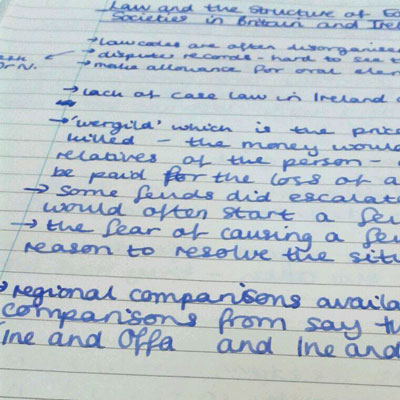 Law and the structure of
Societies in Britain and Irel
→ lawcodes are often disorganise
→ dispute records - hard to see t
→ make allowance for oral elem
→ Lack of case law in Ireland
→ 'wergild' which is the price
killed - the money would
relatives of the person -
be paid for the loss of a
→ Some feuds did escalate
would often start a feu
→ the fear of causing a feu
reason to resolve the situ
→ regional comparisons availa
comparisons from say tw
Ine and Offa and Ine and